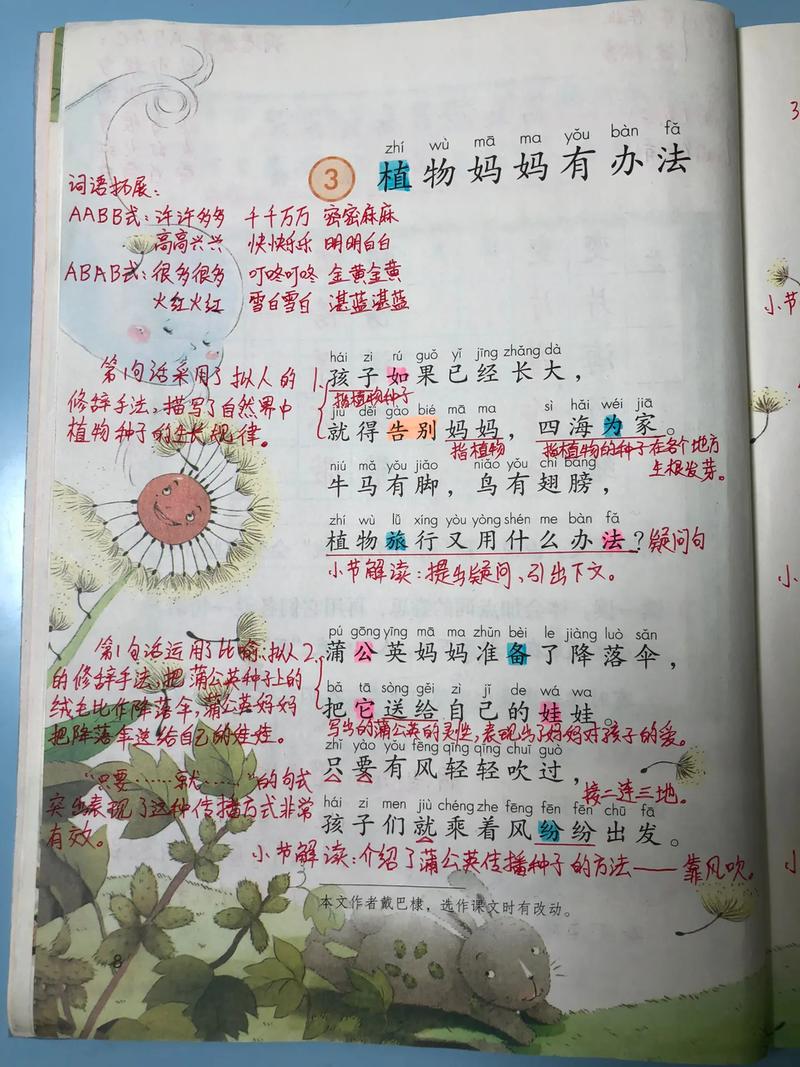 zhí wù mā ma yǒu bàn fǎ
3 植物妈妈有办法
词语拓展：
AABB式：许许多多 千千万万 密密麻麻
高高兴兴 快快乐乐 明明白白
ABAB式：很多很多 叮咚叮咚 金黄金黄
火红火红 雪白雪白 湛蓝湛蓝
第1句话采用了拟人的
修辞手法，描写了自然界中
植物种子的生长规律。
hái zi rú guǒ yǐ jīng zhǎng dà
1. 孩子如果已经长大，
指植物种子
jiù děi gào bié mā ma sì hǎi wéi jiā
就得告别妈妈，四海为家。
指植物 指植物的种子在各个地方
生根发芽。
niú mǎ yǒu jiǎo niǎo yǒu chì bǎng
牛马有脚，鸟有翅膀，
zhí wù lǚ xíng yòu yòng shén me bàn fǎ
植物旅行又用什么办法？疑问句
小节解读：提出疑问，引出下文。
第1句话运用了比喻、拟人
的修辞手法，把蒲公英种子上的
绒毛比作降落伞，蒲公英妈妈
把降落伞送给自己的娃娃。
pú gōng yīng mā ma zhǔn bèi le jiàng luò sǎn
2. 蒲公英妈妈准备了降落伞，
bǎ tā sòng gěi zì jǐ de wá wa
把它送给自己的娃娃。
写出的蒲公英的灵性，表现出了妈妈对孩子的爱。
zhǐ yào yǒu fēng qīng qīng chuī guò
只要有风轻轻吹过，
接二连三地。
“只要……就……”的句式
突出表现了这种传播方式非常
有效。
hái zi men jiù chéng zhe fēng fēn fēn chū fā
孩子们就乘着风纷纷出发。
小节解读：介绍了蒲公英传播种子的方法——靠风吹。
本文作者戴巴棣，选作课文时有改动。
8
3
小节